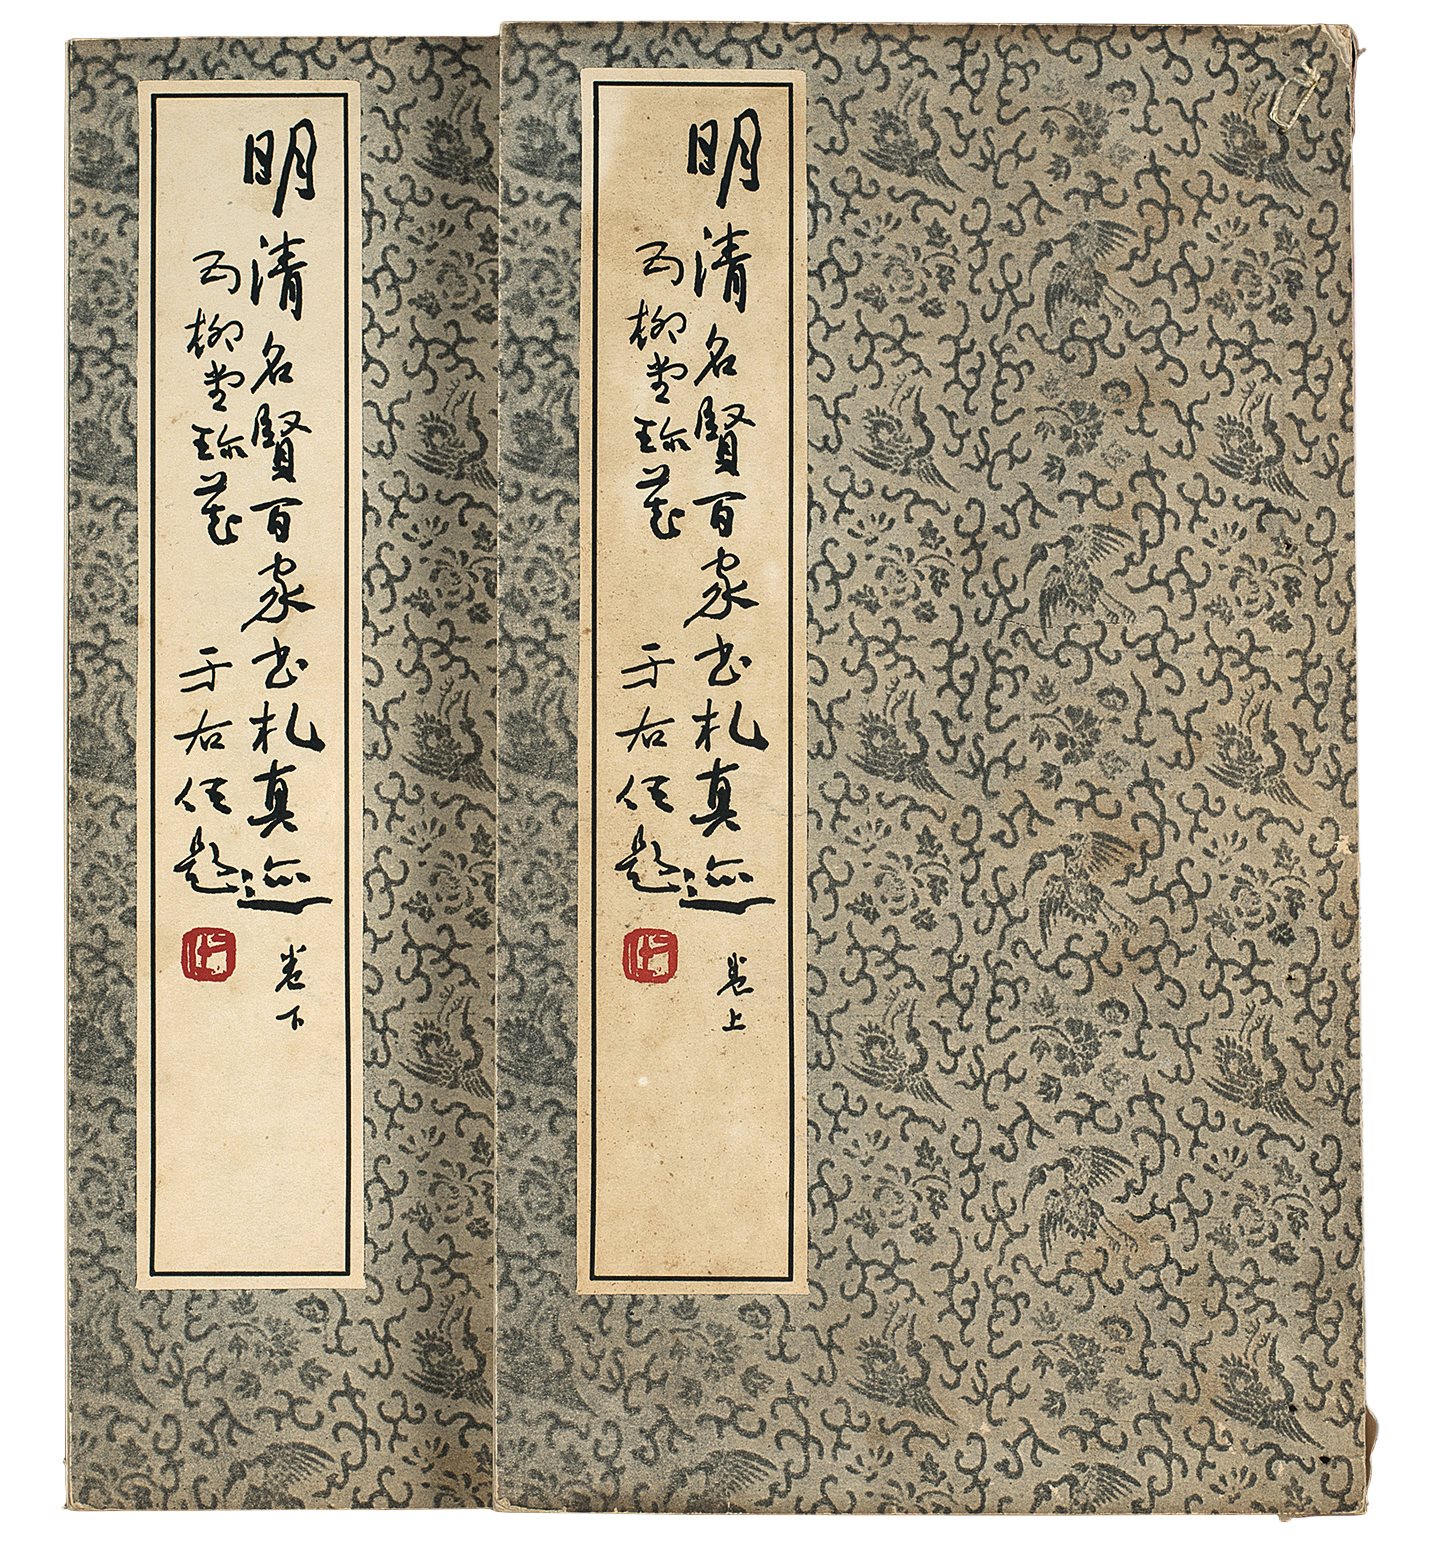 明清名賢百家書札真迹 卷上
柳堂珍藏 于右任題
明清名賢百家書札真迹 卷下
柳堂珍藏 于右任題